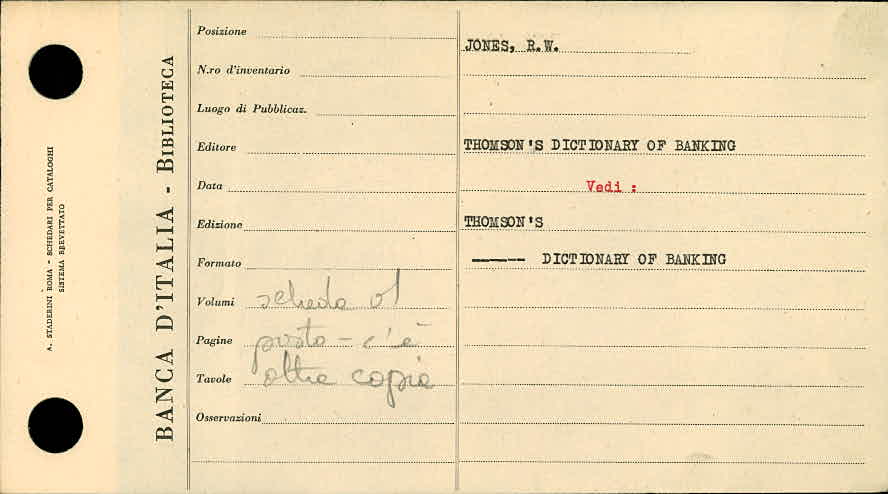 A. STADERINI ROMA - SCHEDARI PER CATALOGHI
SISTEMA BREVETTATO
BANCA D'ITALIA - BIBLIOTECA
Posizione
N.ro d'inventario
Luogo di Pubblicaz.
Editore
Data
Edizione
Formato
Volumi
Pagine
Tavole
Osservazioni
scheda al
posto - c'è
altra copia
JONES, R.W.
THOMSON'S DICTIONARY OF BANKING
Vedi :
THOMSON'S
——— DICTIONARY OF BANKING